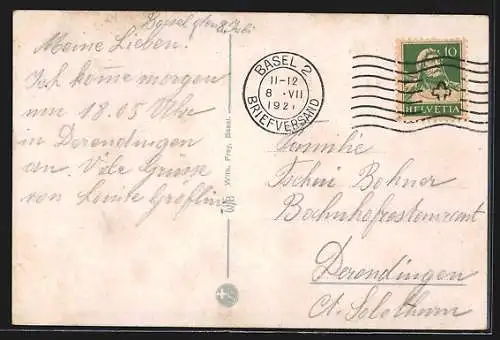 Basel den 8. Juli
Meine Lieben!
Ich kom̄e morgen
um 18.05 Uhr
in Derendingen
an. Viele Grüsse
von
Wilh. Frey, Basel.
BASEL 2
11-12
8 . VII
192
BRIEFVERSAND
10
HELVETIA
Familie
Bohner
Bahnhofrestaurant
Derendingen
Ct. Solothurn